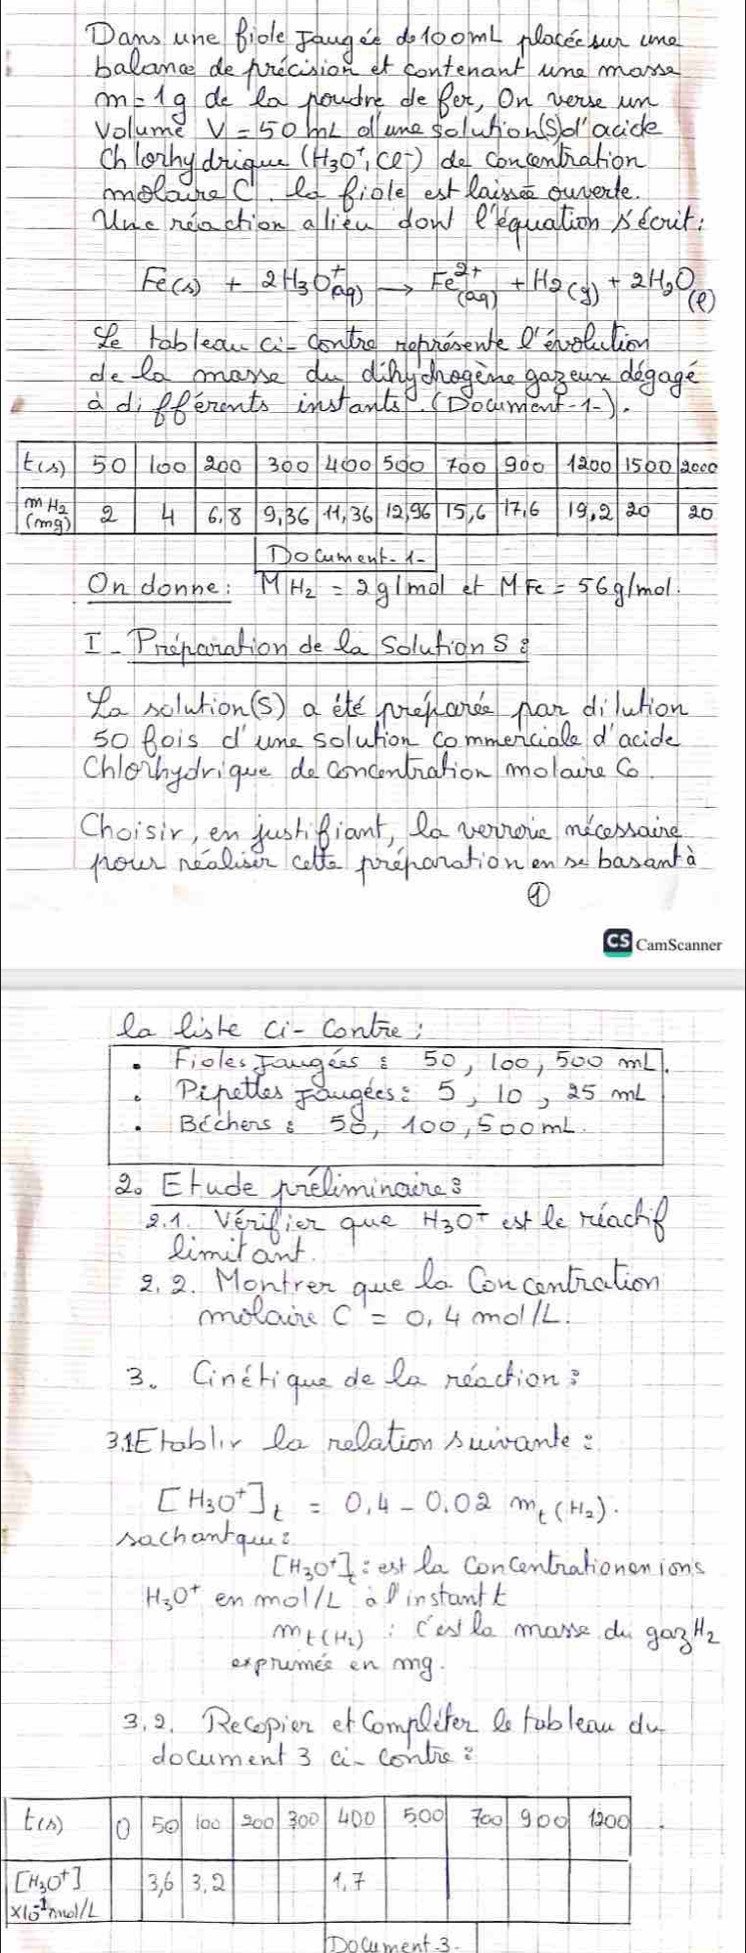 Dans une fiole jaugée de 100mL placée sur une
balance de précision et contenant une masse
m=1g de la poudre de fer, On verse un
volume V = 50 mL d'une solution(S)d'acide
Chlorhydrique (H3O+, Cl-) de concentration
molaire C. la fiole est laissée ouverte.
Une réaction a lieu dont l'équation s'écrit:
Fe(s) + 2H3O+(aq) → Fe2+(aq) + H2(g) + 2H2O(l)
Le tableau ci-contre représente l'évolution
de la masse du dihydrogène gazeux dégagé
à différents instants. (Document-1-).
t(s) 50 100 200 300 400 500 700 900 1200 1500 2000
mH2 (mg) 2 4 6,8 9,36 11,36 12,96 15,6 17,6 19,2 20 20
Document-1-
On donne: MH2 = 2g/mol et MFe = 56g/mol.
I - Préparation de la Solution S :
La solution(S) a été préparée par dilution
50 fois d'une solution commerciale d'acide
Chlorhydrique de concentration molaire C0.
Choisir, en justifiant, la verrerie nécessaire
pour réaliser cette préparation en se basant à
①
CS CamScanner
la liste ci-contre:
• Fioles jaugées : 50, 100, 500 mL.
• Pipettes jaugées: 5, 10, 25 mL
• Béchers : 50, 100, 500mL.
2. Etude préliminaire:
2.1. Vérifier que H3O+ est le réactif
limitant.
2.2. Montrer que la Concentration
molaire C = 0,4 mol/L.
3. Cinétique de la réaction:
3.1 Etablir la relation suivante:
[H3O+]t = 0,4 - 0.02 mt(H2).
sachant que:
[H3O+]t : est la concentration en ions
H3O+ en mol/L à l'instant t
mt(H2) : C'est la masse du gaz H2
exprimée en mg.
3.2. Recopier et Compléter le tableau du
document 3 ci-contre:
t(s) 0 50 100 200 300 400 500 700 900 1200
[H3O+] x10-1 mol/L 3,6 3,2 1,7
Document-3-